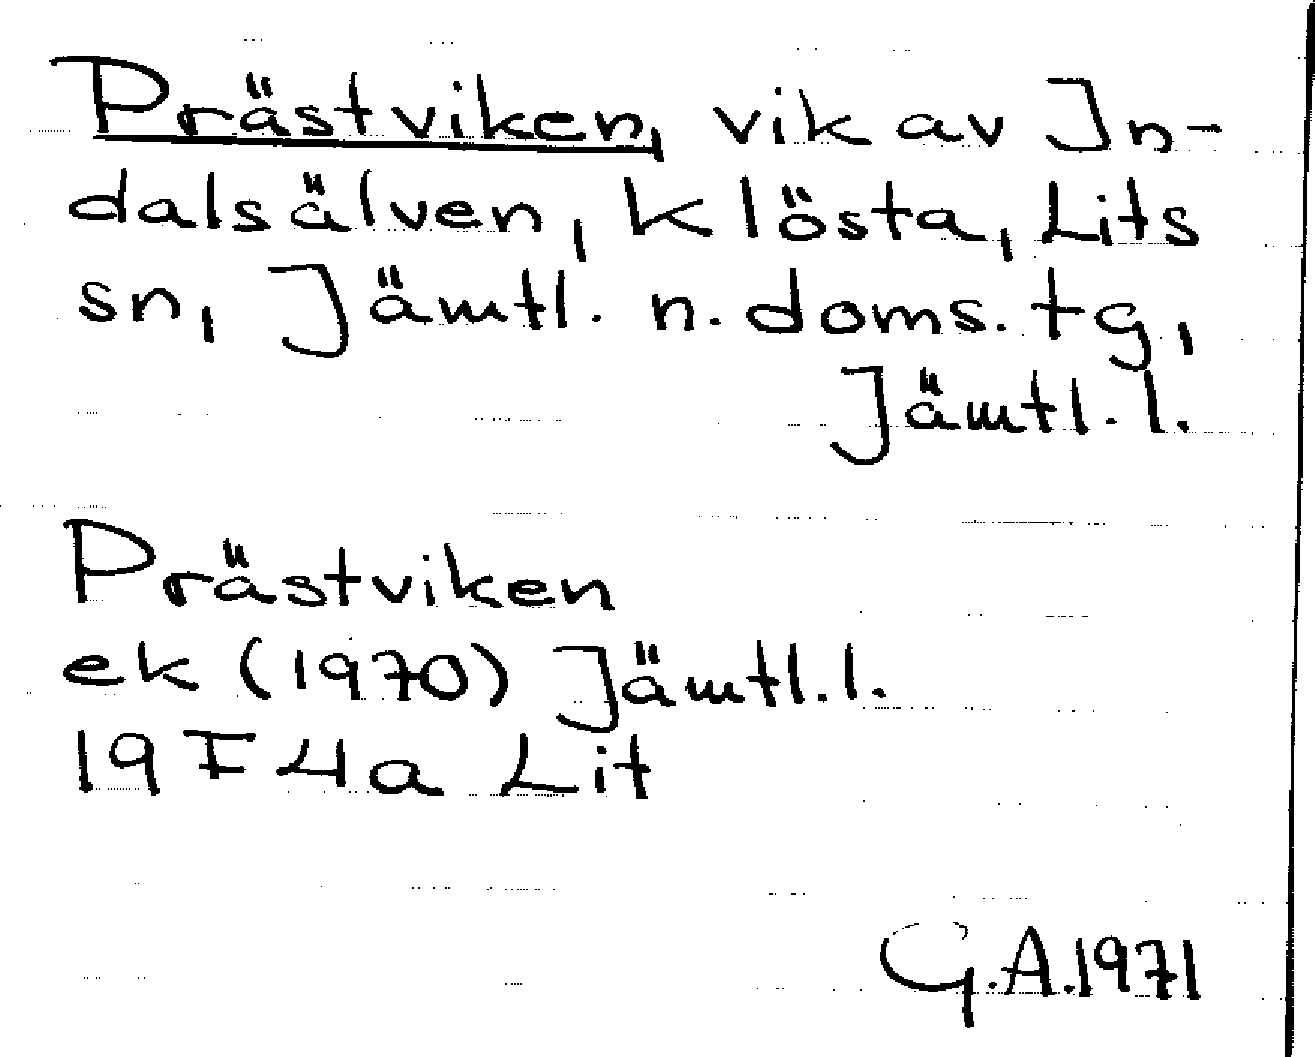 Prästviken, vik av In-
dalsälven, Klösta, Lits
sn, Jämtl. n. doms. tg,
Jämtl. l.
Prästviken
ek (1970) Jämtl. l.
19F4a Lit
G.A.1971